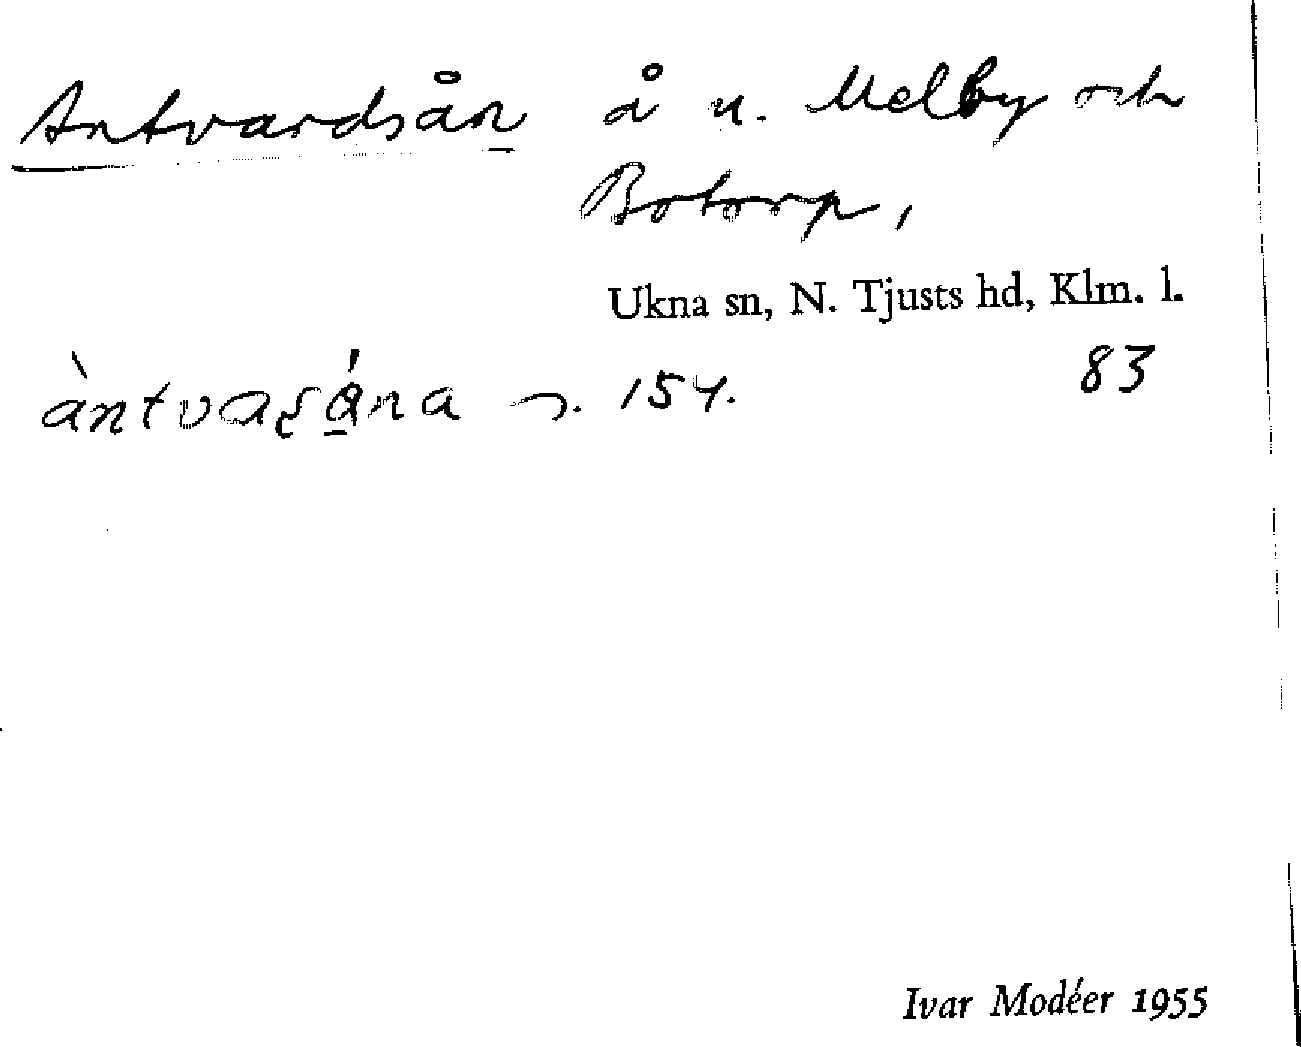 Antvardsån å u. Melby och
Botorp,
Ukna sn, N. Tjusts hd, Klm. l.
83
àntvaʂána 154.
Ivar Modéer 1955